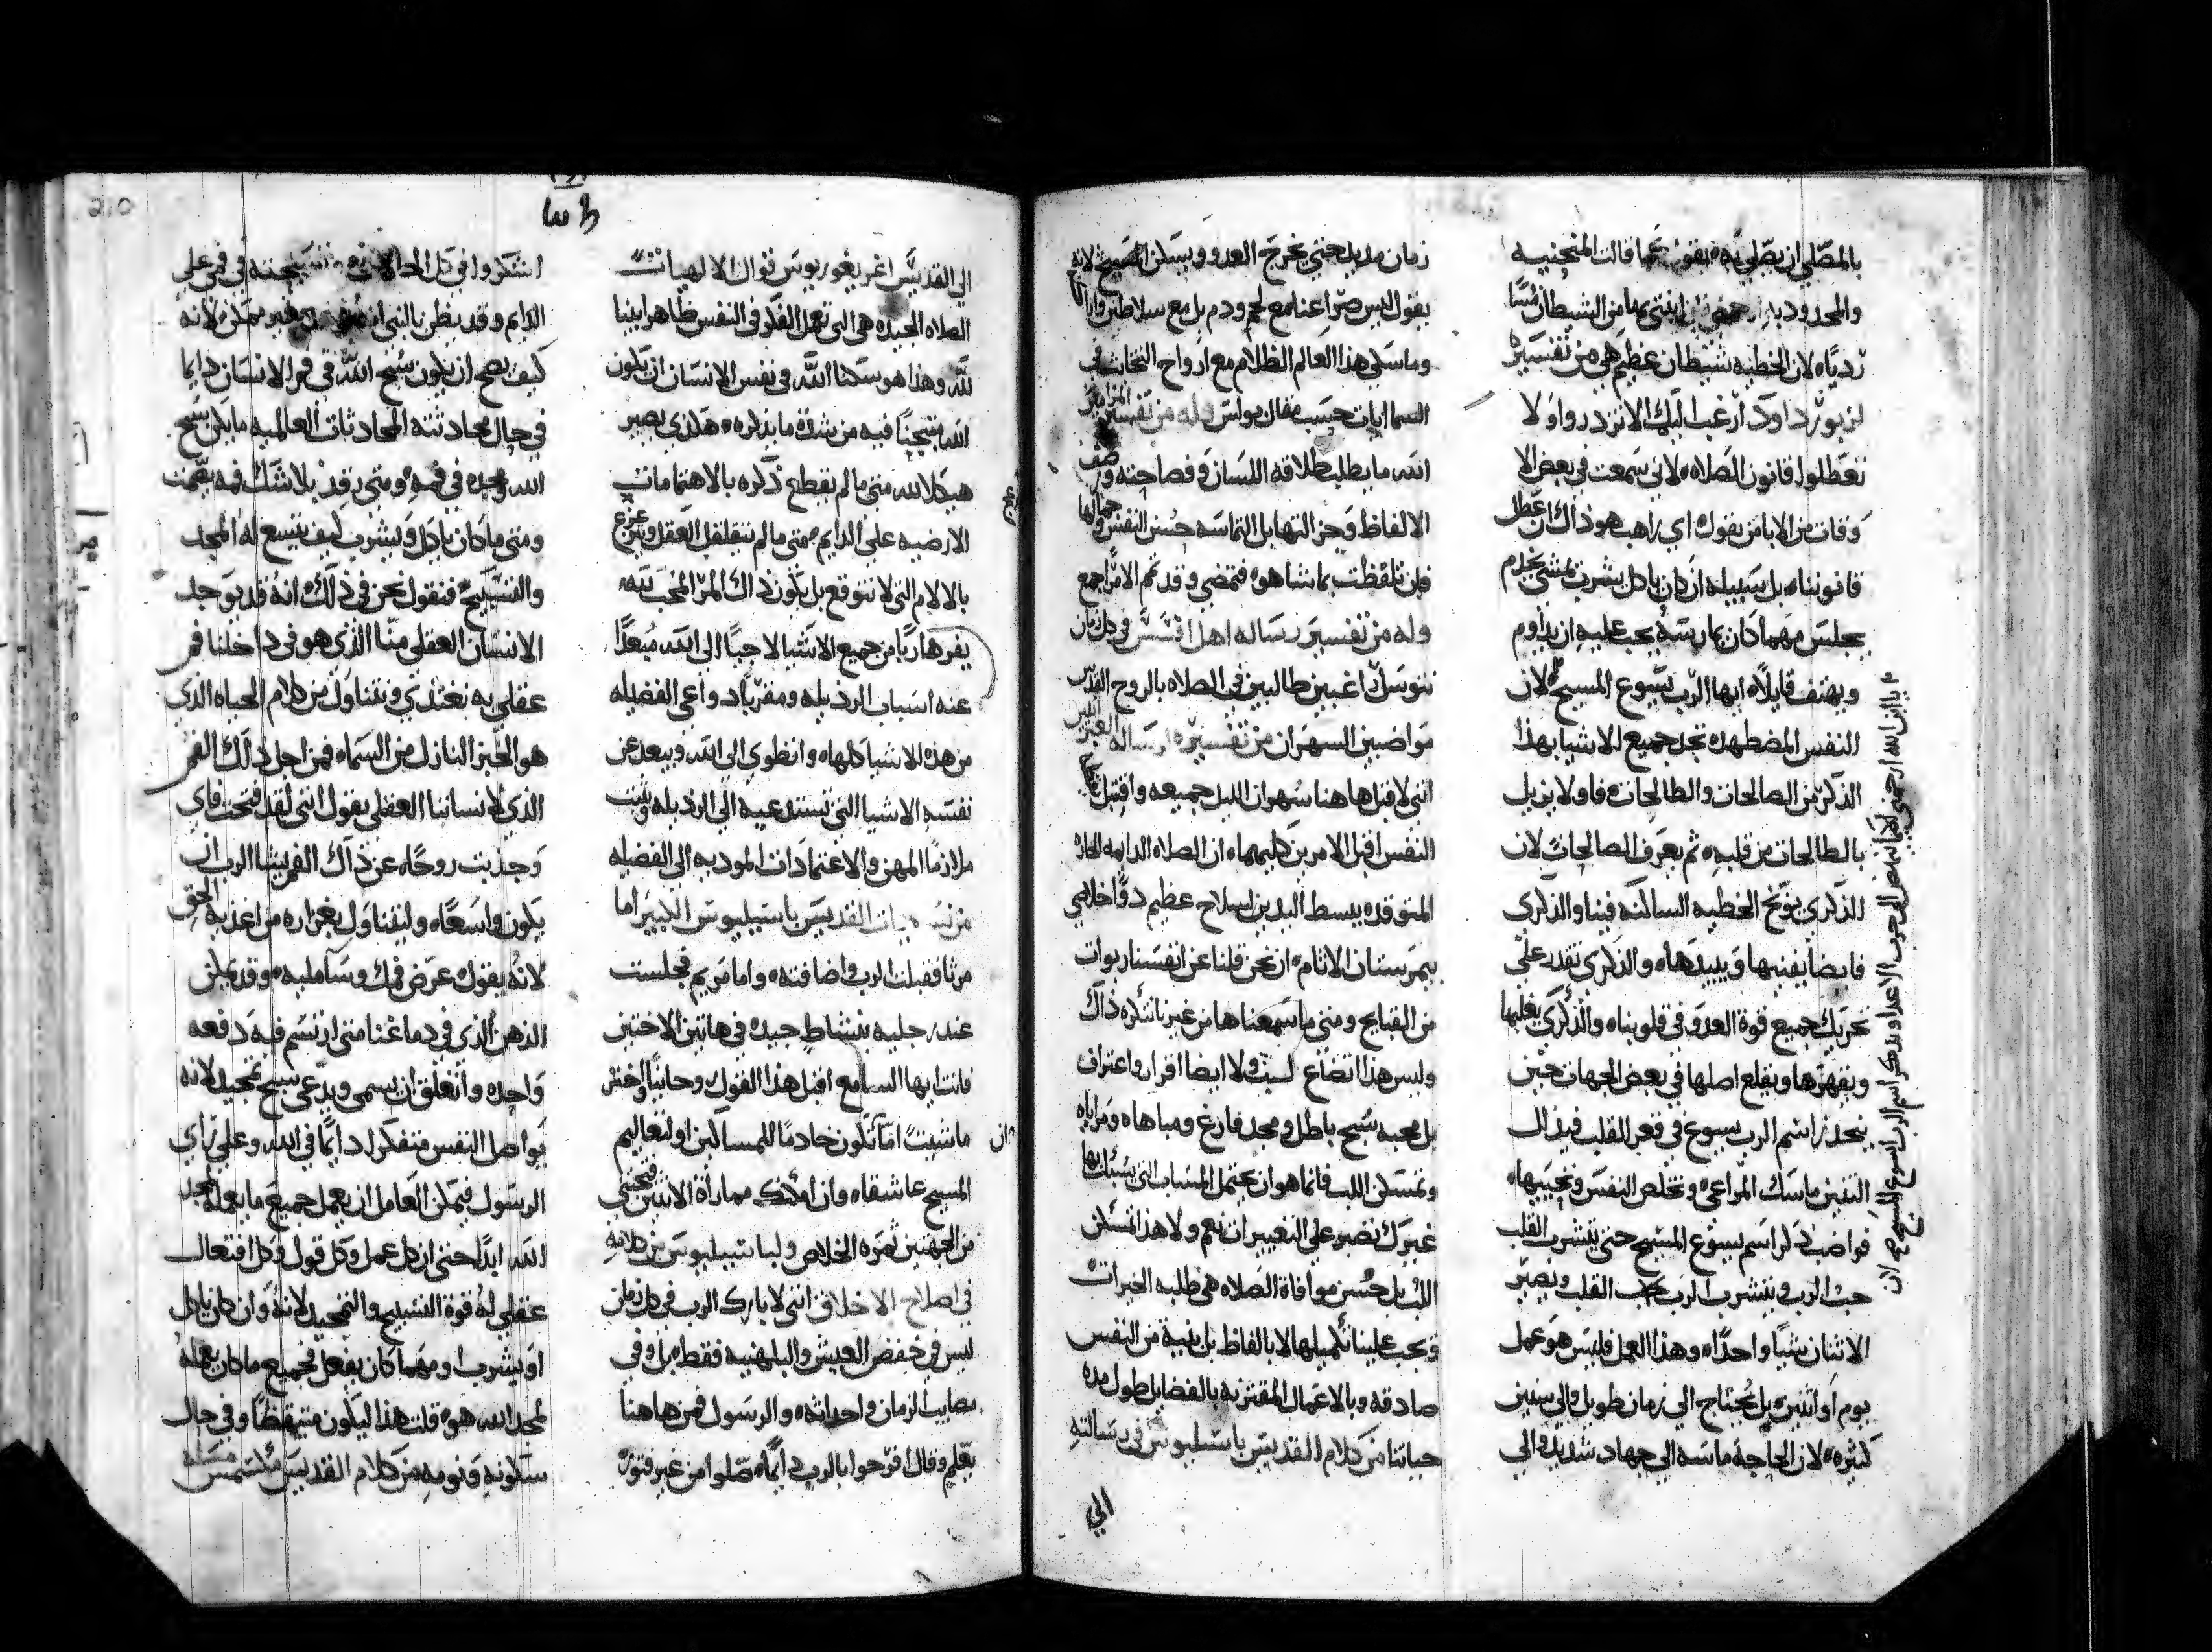 بالمصلي ان يصلي بهذه يقول كما قالت المنحنيه
والمحدوديه ارحمني ابنتي بها من الشيطان مسًا
رديًا لان الخطيه شيطان عظيم هي من تفسيره
لزبور داود ارغب اليك الا تزدروا ولا
تعطلوا قانون الصلاه لاني سمعت في بعض الا
وقات من الابا من يقول اي راهب هو ذاك ان عطل
قانوننا بل سبيله ان كان ياكل يشرب يمشي يخدم
يجلس مهما كان يمارسه يجب عليه ان يداوم
ويهتف قايلًا ايها الرب يسوع المسيح لان
النفس المضطهده تجد جميع الاشيا بهذا
الذكر من الصالحات والطالحات فاولا يزيل
بالطالحات من قلبه ثم يعرف الصالحات لان
الذكرى يوبخ الخطيه الساكنه فينا والذكرى
فايضا يفنيها ويبيدها والذكرى تقدر على
تحريك جميع قوة العدو في قلوبنا والذكرى يغلبها
ويقهرها ويقلع اصلها في بعض الجهات حين
ينحدر اسم الرب يسوع في قعر القلب فيذل
التنين ماسك المراعي ويخلص النفس ويحييها
فواضب ذكر اسم يسوع المسيح حتى يتشرب القلب
حب الرب ويتشرب الرب حب القلب ويصير
الاثنان شيا واحدًا وهذا العمل فليس هو عمل
يوم او اثنين بل يحتاج الى زمان طويل والى سنين
كثيره لان الحاجه ماسه الى جهاد شديد والى
يا ابن الله ارحمني
الاعدا ويذكر اسم الرب يسوع المسيح لان
زمان مديد حتى يخرج العدو ويسكن المسيح لانه
يقول ليس صراعنا مع لحم ودم بل مع سلاطين واراكنه
وماسكي هذا العالم الظلام مع ارواح الخبث في
السماايات حسب مقال بولس وله من تفسير المزامير
الله ما يطلب طلاقه اللسان وفصاحته ورصف
الالفاظ وحز التهابل التماسه حسن النفس وجمالها
فان تلفظت بما شا هو فتمضي وقد تم الامر اجمع
وله من تفسير رساله اهل افسس في كل زمان
نتوسل راغبين طالبين في الصلاه بالروح القدس
مواضبين السهران من تفسيره لرساله العبرانيين
انني لا قبل هاهنا سهران الليل جميعه واقبل
النفس اقبل الامرين كليهما ان الصلاه الدايمه الحاره
المتوقده يبسط اليدين لسلاح عظيم دوا خلاصي
بيمرستان الاثام ان نحن قلنا عن انفسنا ربوات
من القبايح ومتى ما سمعناها من غيرنا نكره ذاك
وليس هذا اتضاع لست ولا ايضا اقرار واعتراف
بل محبه سبح باطل ومجد فارغ ومباهاه ومراياه
وتمسكن اللب فانما هو ان يحتمل المساب التي يسبك بها
غيرك نصبر على التعييرات نعم ولا هذا تمسكن
اللب بل حسن موافاة الصلاه هي طلبه الخيرات
ويجب علينا تكميلها لا بالفاظ بل بنية من النفس
صادقه وبالاعمال المقترنه بالفضايل طول مده
حياتنا من كلام القديس باسيليوس في رسالته
الى
الى القديس اغريغوريوس قوال الالهيات
الصلاه الجيده هي التي تعمل الفكر في النفس ظاهرا بينا
لله وهذا هو سكنا الله في نفس الانسان ان يكون
الله متيحنا فيه من شدة ما يذكره هكذى يصير
هيكلا لله متى ما لم يقطع ذكره بالاهتمامات
الارضيه على الدايم متى ما لم يتقلقل العقل ويتزعزع
بالالام التي لا تتوقع بل يكون ذاك المرا المحب لله
يفر هاربًا من جميع الاشيا لاجيًا الى الله مبعدًا
عنه اسباب الرذيله ومفر ياد واعي الفضيله
من هذه الاشيا كلها وانطوي الى الله ويبعد عن
نفسه الاشيا التي تستدعيه الى الرذيله ويثبت
ملازما المهن والاعتمادات الموديه الى الفضيله
من نسكيات القديس باسيليوس الكبير اما
مرثا فقبلت الرب واضافته واما مريم فجلست
عند رجليه بنشاط جيد في هاتين الاختين
فانت ايها السامع اقبل هذا القول وحايبا واختر
ما شيت اما تكون خادمًا للمساكين او لتعاليم
المسيح عاشقا وان امكنك مماراة الاثنين فتجتني
من الجهتين ثمره الخلاص ولباسيليوس من كلامه
في اصلاح الاخلاق انني لا بارك الرب في كل زمان
ليس في خفض العيش والبلهنيه فقط بل وفي
مصايب الزمان واحداثه والرسول فمن هاهنا
يعلم وقال افرحوا بالرب دايمًا صلوا من غير فتور
210
اشكروا في كل الحالات تسبحته في فمي على
الدايم وقد يظن بالنبي انه غير ممكن لانه
كيف يصح ان يكون سبح الله في فم الانسان دايما
في حال محادثته المحادثات العالميه ما يكن سبح
الله ومجده في فمه ومتى رقد بلا شك فمه يصمت
ومتى ما كان ياكل ويشرب كيف يتسع له المجد
والتسبيح فنقول نحن في ذلك انه قد يوجد
الانسان العقلي منا الذي هو في داخلنا فم
عقلي به نغتذي ونتناول من كلام الحياه الذي
هو الخبز النازل من السما فمن اجل ذلك الفم
الذي لانساننا العقلي يقول انني لقد فتحت فاي
وجذبت روحًا عن ذاك الفم يشا الرب ان
يكون واسعًا وليتناول بغزاره من اغذية الحق
لانه يقول عرض فمك وساملیه وقد يمكن
الذهن الذي في دماغنا متى ارتسم فيه دفعه
واحده وانغلق ان يسمى ويدعى سبح تمجيد لانه
يواصل النفس متفكرا دايمًا في الله وعلى راي
الرسول فيمكن العامل ان يعمل جميع ما يعمله لمجد
الله ابدًا حتى ان كل عمل وكل قول وكل افتعال
عقلي له قوة التسبيح والتمجيد لانه وان كان ياكل
او يشرب او مهما كان يفعل فجميع ما كان يعمله
لمجد الله هو قلت هذا ليكون متيقظًا وفي حال
سكونه ونومه من كلام القديس مكسيمس